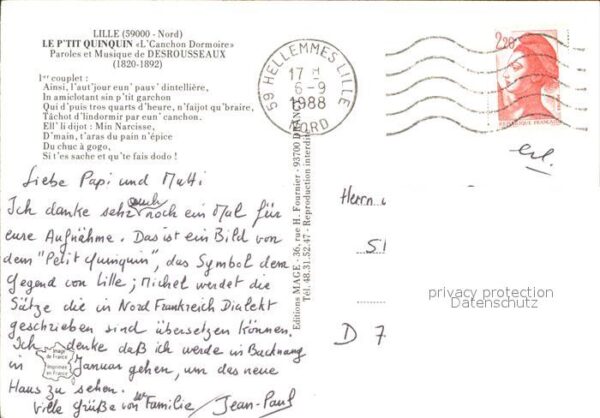 LILLE (59000 - Nord)
LE P'TIT QUINQUIN «L'Canchon Dormoire»
Paroles et Musique de DESROUSSEAUX
(1820-1892)
1er couplet :
Ainsi, l'aut'jour eun' pauv' dintellière,
In amiclotant sin p'tit garchon
Qui d'puis tros quarts d'heure, n'faijot qu'braire,
Tâchot d'lindormir par eun' canchon.
Ell' li dijot : Min Narcisse,
D'main, t'aras du pain n'épice
Du chuc à gogo,
Si t'es sache et qu'te fais dodo !
59 HELLEMMES LILLE
17 H
6-9
1988
NORD
2,20
REPUBLIQUE FRANÇAISE
erl.
Liebe Papi und Mutti
Ich danke sehr auch noch ein Mal für
eure Aufnahme. Das ist ein Bild von
dem "Petit Quinquin", das Symbol dem
Gegend von Lille; Michel werdet die
Sätze die in Nord Frankreich Dialekt
geschrieben sind übersetzen können.
Ich denke daß ich werde in Backnang
in Januar gehen, um das neue
Haus zu sehen.
Viele Grüße von Familie Jean-Paul
Image de France
Imprimée en France
Editions MAGE - 36, rue H. Fournier - 93700 DRANCY
Tél. 48.31.52.47 - Reproduction interdite
Herrn
D 7
privacy protection
Datenschutz